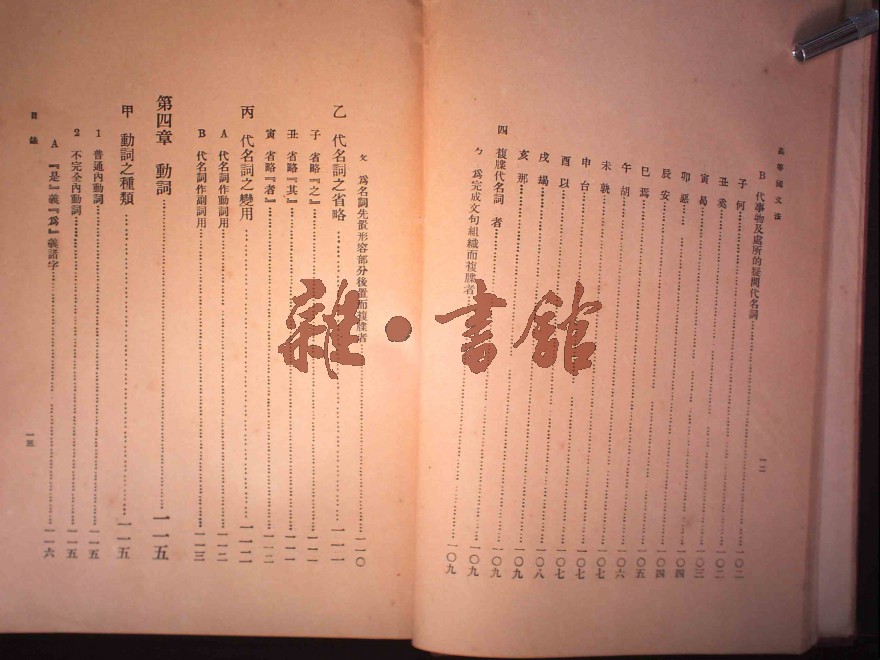 高等國文法
B 代事物及處所的疑問代名詞……一〇二
子 何……一〇二
丑 奚……一〇三
寅 曷……一〇四
卯 惡……一〇四
辰 安……一〇五
巳 焉……一〇六
午 胡……一〇七
未 孰……一〇七
申 台……一〇七
酉 以……一〇八
戌……一〇九
亥 那……一〇九
四 複牒代名詞 者……一〇九
ㄅ 爲完成文句組織而複牒者……一〇九
一二
ㄆ 爲名詞先置形容部分後置而複牒者……一一〇
乙 代名詞之省略……一一一
子 省略『之』……一一一
丑 省略『其』……一一一
寅 省略『者』……一一二
丙 代名詞之變用……一一二
A 代名詞作動詞用……一一二
B 代名詞作副詞用……一一三
第四章 動詞……一一五
甲 動詞之種類……一一五
1 普通內動詞……一一五
2 不完全內動詞……一一五
A 『是』義『爲』義諸字……一一六
目錄
一三
雜·書館